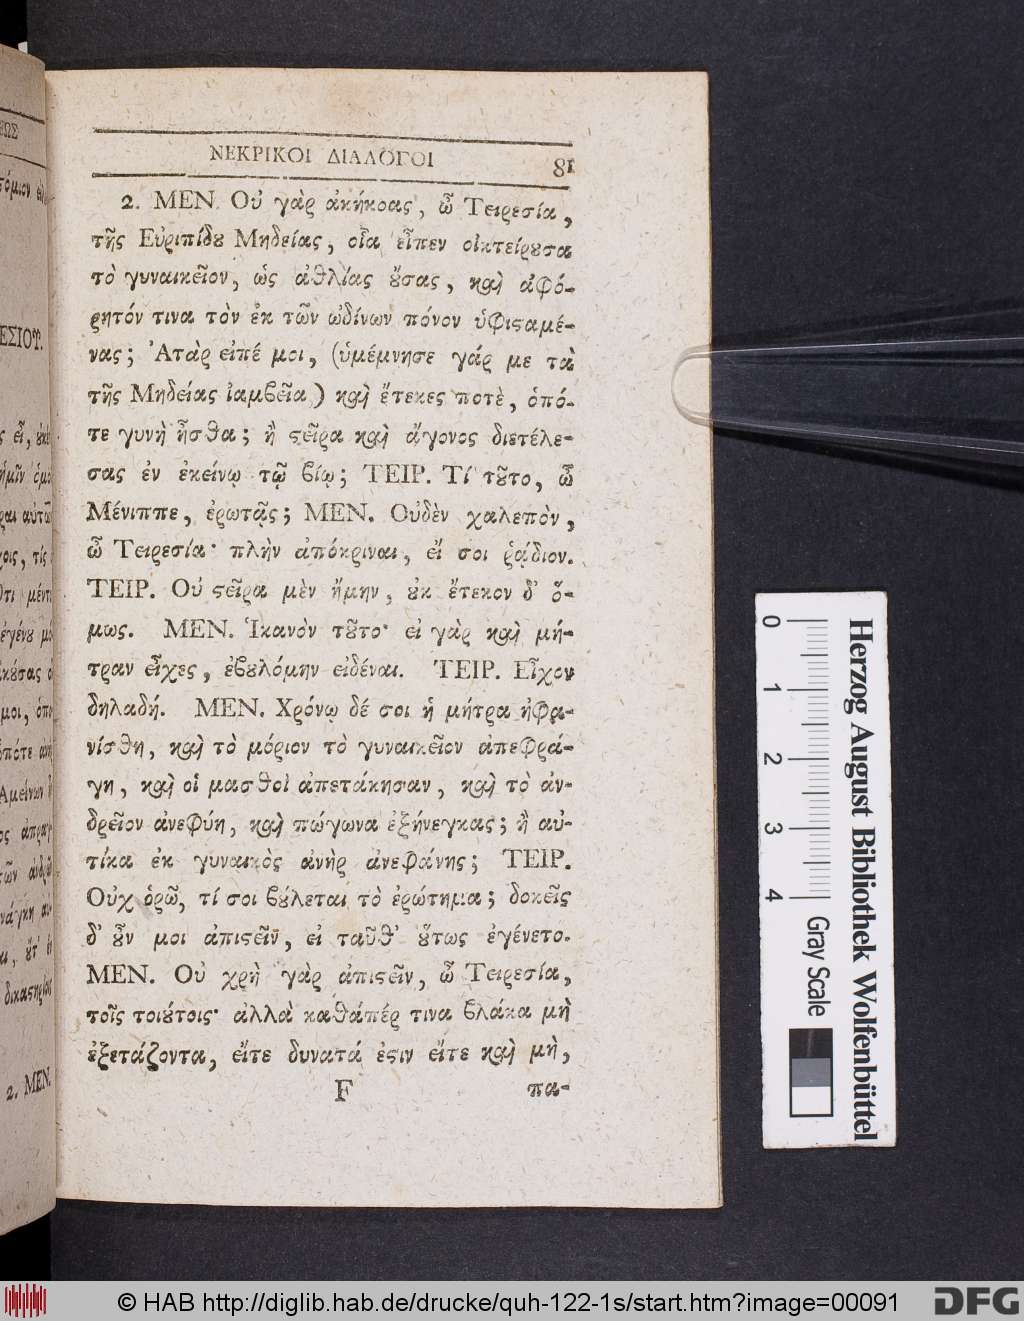 ΝΕΚΡΙΚΟΙ ΔΙΑΛΟΓΟΙ 81
2. ΜΕΝ. Οὐ γὰρ ἀκήκοας, ὦ Τειρεσία,
τῆς Εὐριπίδȣ Μηδείας, οἷα εἶπεν οἰκτείρȣσα
τὸ γυναικεῖον, ὡς ἀθλίας ȣ̓́σας, καὶ ἀφό-
ρητόν τινα τὸν ἐκ τῶν ὠδίνων πόνον ὑφιϛαμέ-
νας; Ἀτὰρ εἰπέ μοι, (ὑμέμνησε γάρ με τὰ
τῆς Μηδείας ἰαμβεῖα) καὶ ἔτεκες ποτὲ, ὁπό-
τε γυνὴ ἦσθα; ἢ ϛεῖρα καὶ ἄγονος διετέλε-
σας ἐν ἐκείνῳ τῷ βίῳ; ΤΕΙΡ. Τί τȣ͂το, ὦ
Μένιππε, ἐρωτᾷς; ΜΕΝ. Οὐδὲν χαλεπὸν,
ὦ Τειρεσία· πλὴν ἀπόκριναι, εἴ σοι ῥᾴδιον.
ΤΕΙΡ. Οὐ ϛεῖρα μὲν ἤμην, ȣ̓κ ἔτεκον δ’ ὅ-
μως. ΜΕΝ. Ἱκανὸν τȣ͂το· εἰ γὰρ καὶ μή-
τραν εἶχες, ἐβȣλόμην εἰδέναι. ΤΕΙΡ. Εἶχον
δηλαδή. ΜΕΝ. Χρόνῳ δέ σοι ἡ μήτρα ἠφα-
νίσθη, καὶ τὸ μόριον τὸ γυναικεῖον ἀπεφρά-
γη, καὶ οἱ μασθοὶ ἀπετάκησαν, καὶ τὸ ἀν-
δρεῖον ἀνεφύη, καὶ πώγωνα ἐξήνεγκας; ἢ αὐ-
τίκα ἐκ γυναικὸς ἀνὴρ ἀνεφάνης; ΤΕΙΡ.
Οὐχ ὁρῶ, τί σοι βȣ́λεται τὸ ἐρώτημα; δοκεῖς
δ’ ȣ̓͂ν μοι ἀπιϛεῖν, εἰ ταῦθ’ ȣ̔́τως ἐγένετο.
ΜΕΝ. Οὐ χρὴ γὰρ ἀπιϛεῖν, ὦ Τειρεσία,
τοῖς τοιȣ́τοις· ἀλλὰ καθάπέρ τινα βλάκα μὴ
ἐξετάζοντα, εἴτε δυνατά ἐϛιν εἴτε καὶ μὴ,
F πα-
2. ΜΕΝ.
0 1 2 3 4
Gray Scale
Herzog August Bibliothek Wolfenbüttel
© HAB http://diglib.hab.de/drucke/quh-122-1s/start.htm?image=00091
DFG